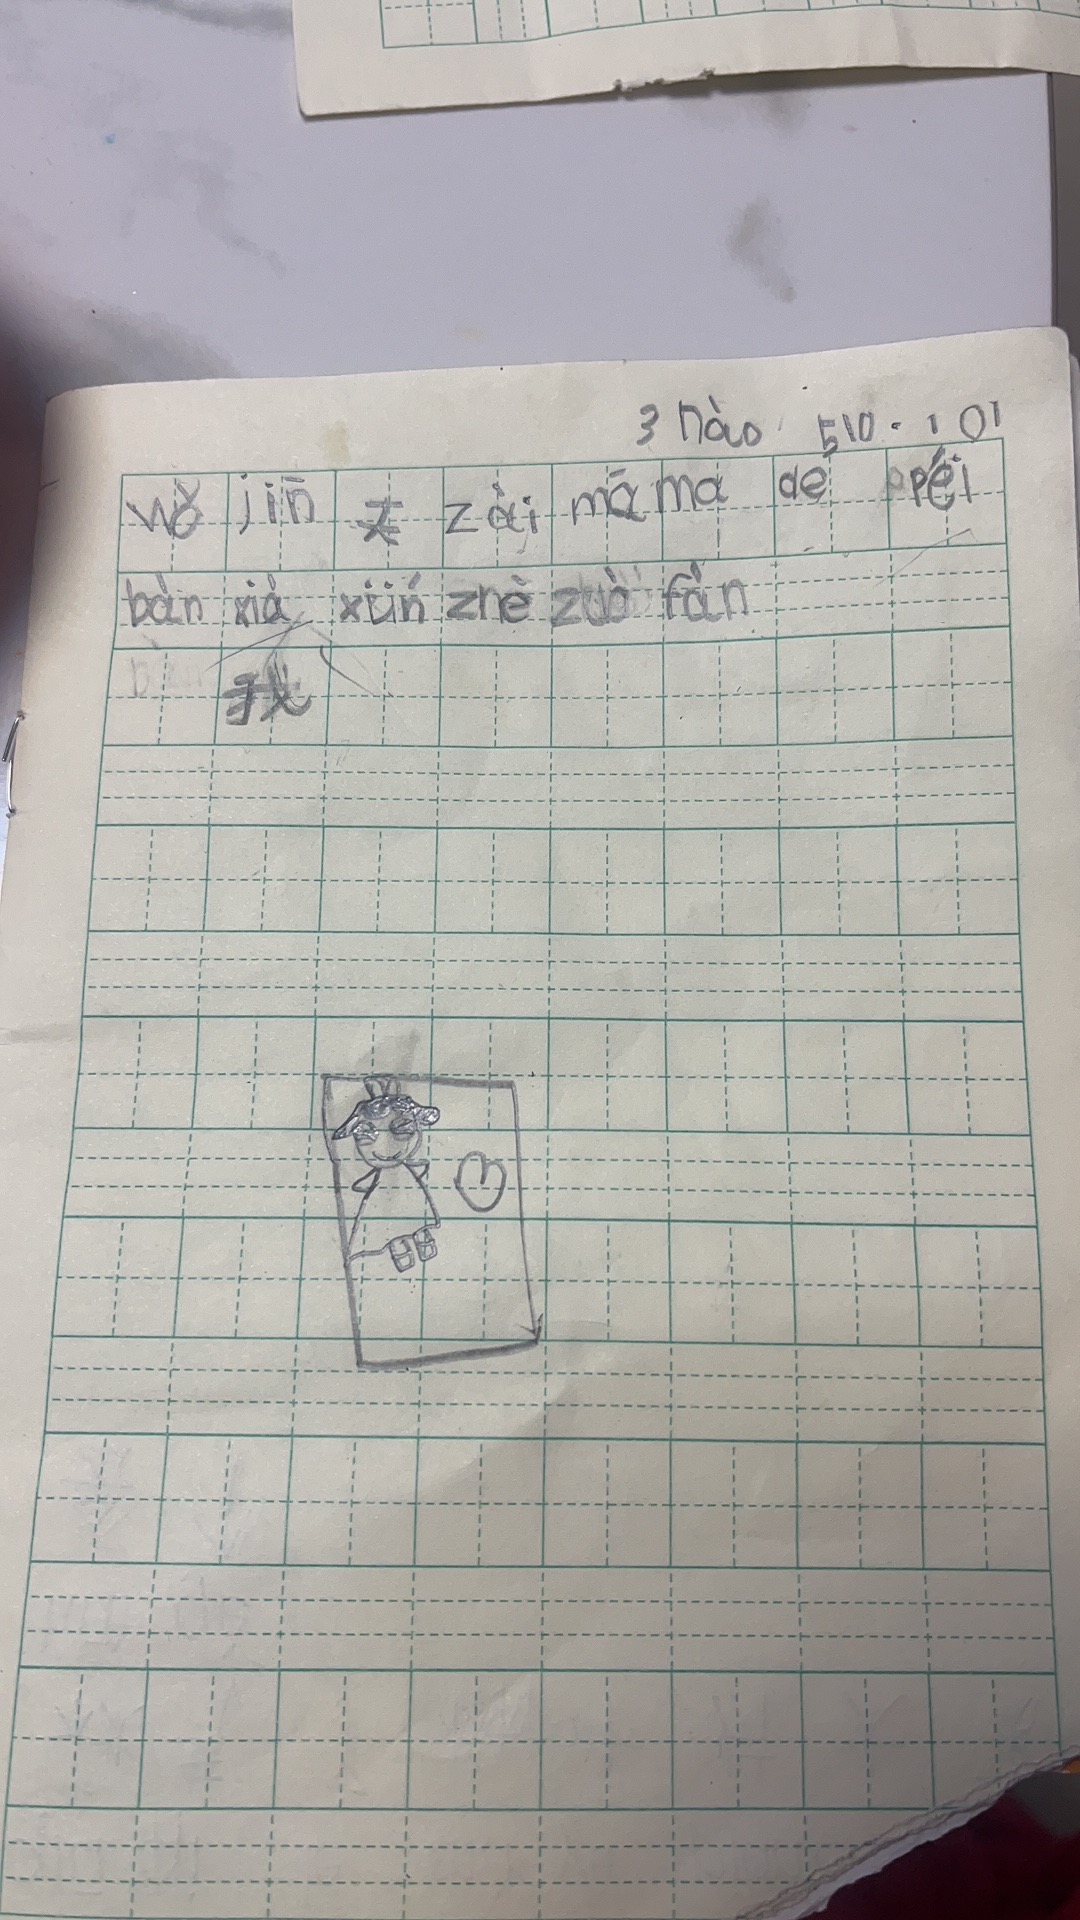 3 hào 510.101
wǒ jīn 天 zài mā ma de péi
bàn xià xüń zhè zuò fàn
我